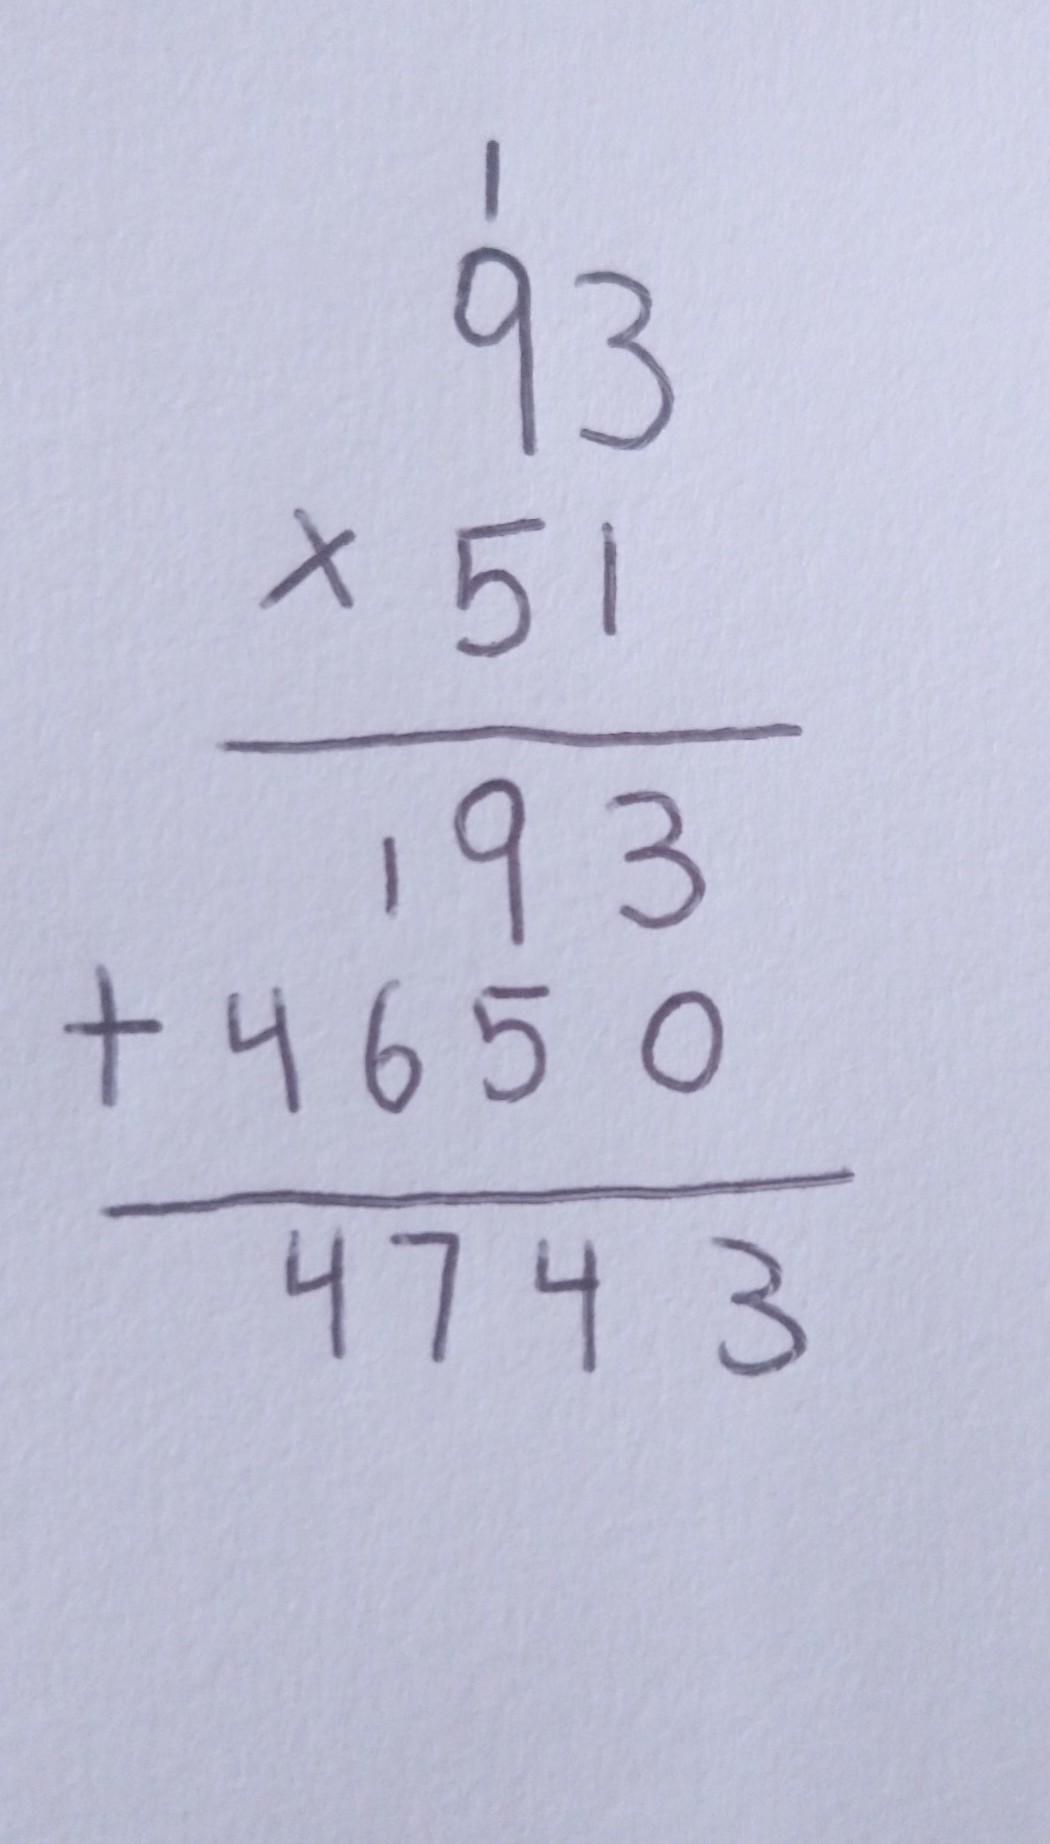 1
93
× 51
193
+ 4650
4743